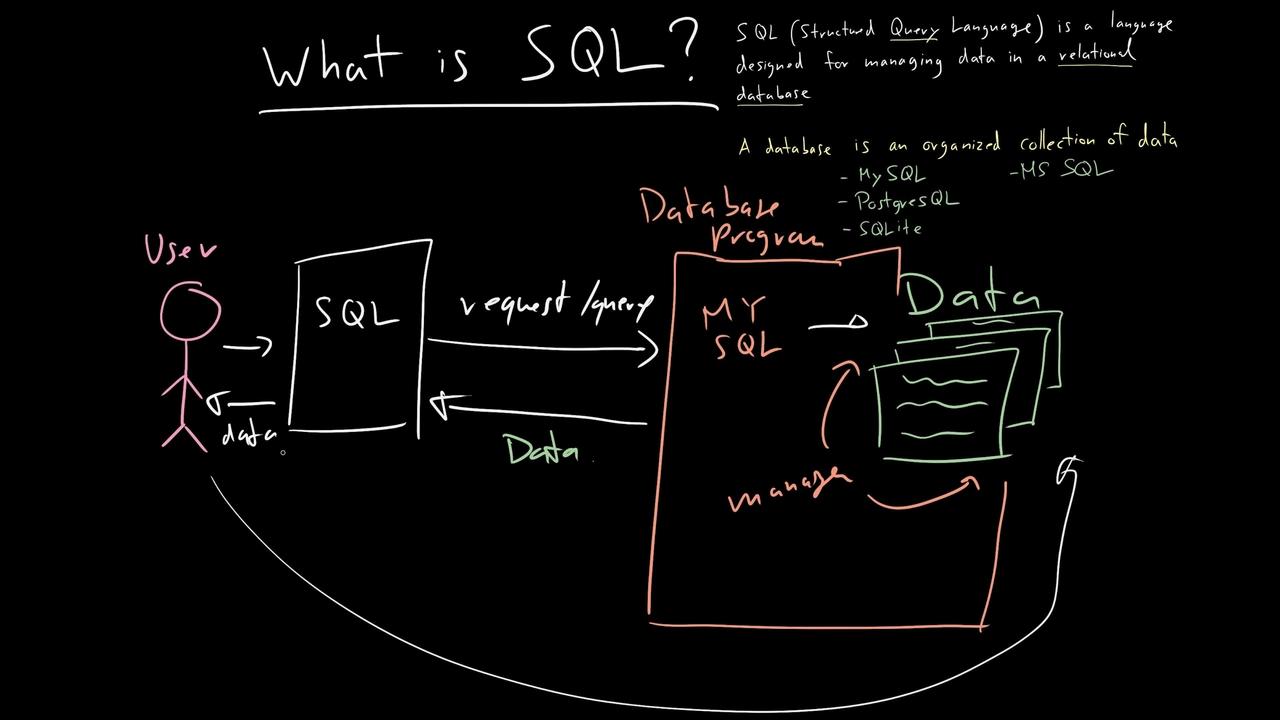 What is SQL?
SQL (Structured Query Language) is a language
designed for managing data in a relational
database
A database is an organized collection of data
- MySQL
- MS SQL
- PostgresQL
- SQLite
Database
Program
User
SQL
request /query
MY
SQL
Data
data
Data
manager